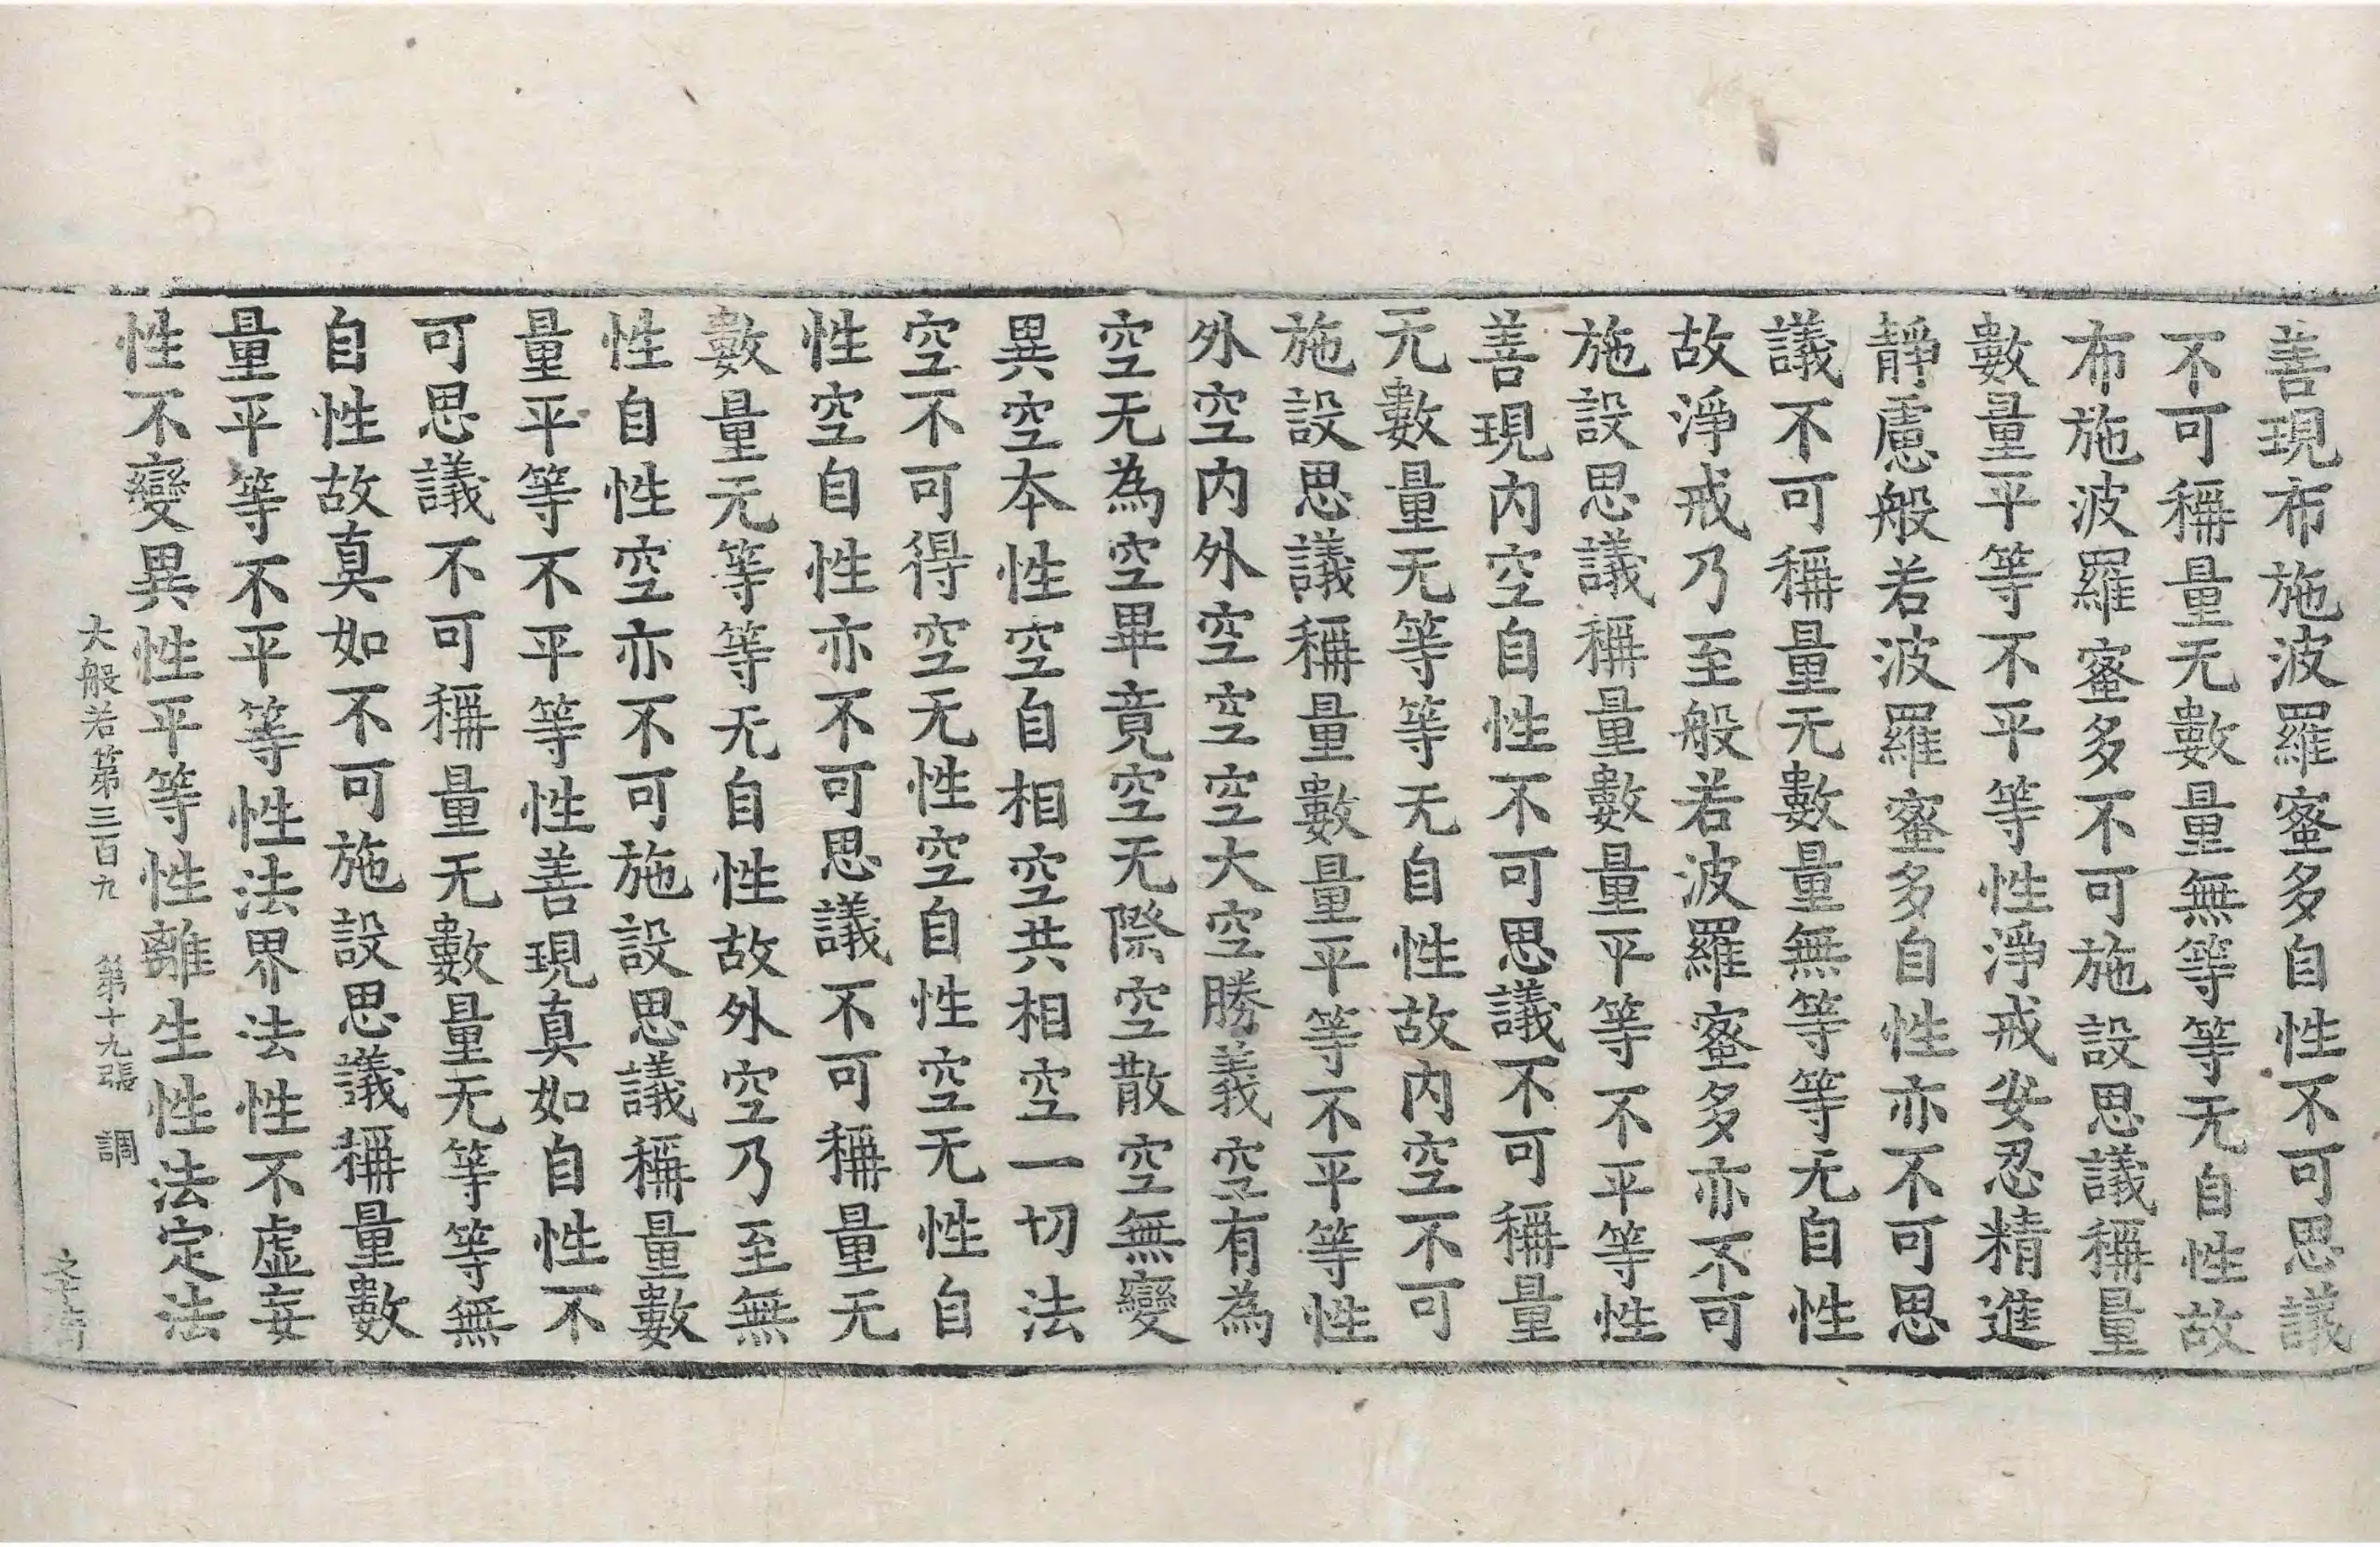 善現布施波羅蜜多自性不可思議
不可稱量无數量無等等无自性故
布施波羅蜜多不可施設思議稱量
數量平等不平等性淨戒安忍精進
靜慮般若波羅蜜多自性亦不可思
議不可稱量无數量無等等无自性
故淨戒乃至般若波羅蜜多亦不可
施設思議稱量數量平等不平等性
善現內空自性不可思議不可稱量
无數量无等等无自性故內空不可
施設思議稱量數量平等不平等性
外空內外空空空大空勝義空有為
空无為空畢竟空无際空散空無變
異空本性空自相空共相空一切法
空不可得空无性空自性空无性自
性空自性亦不可思議不可稱量无
數量无等等无自性故外空乃至無
性自性空亦不可施設思議稱量數
量平等不平等性善現真如自性不
可思議不可稱量无數量无等等無
自性故真如不可施設思議稱量數
量平等不平等性法界法性不虛妄
性不變異性平等性離生性法定法
大般若第三百九 第十九張 調